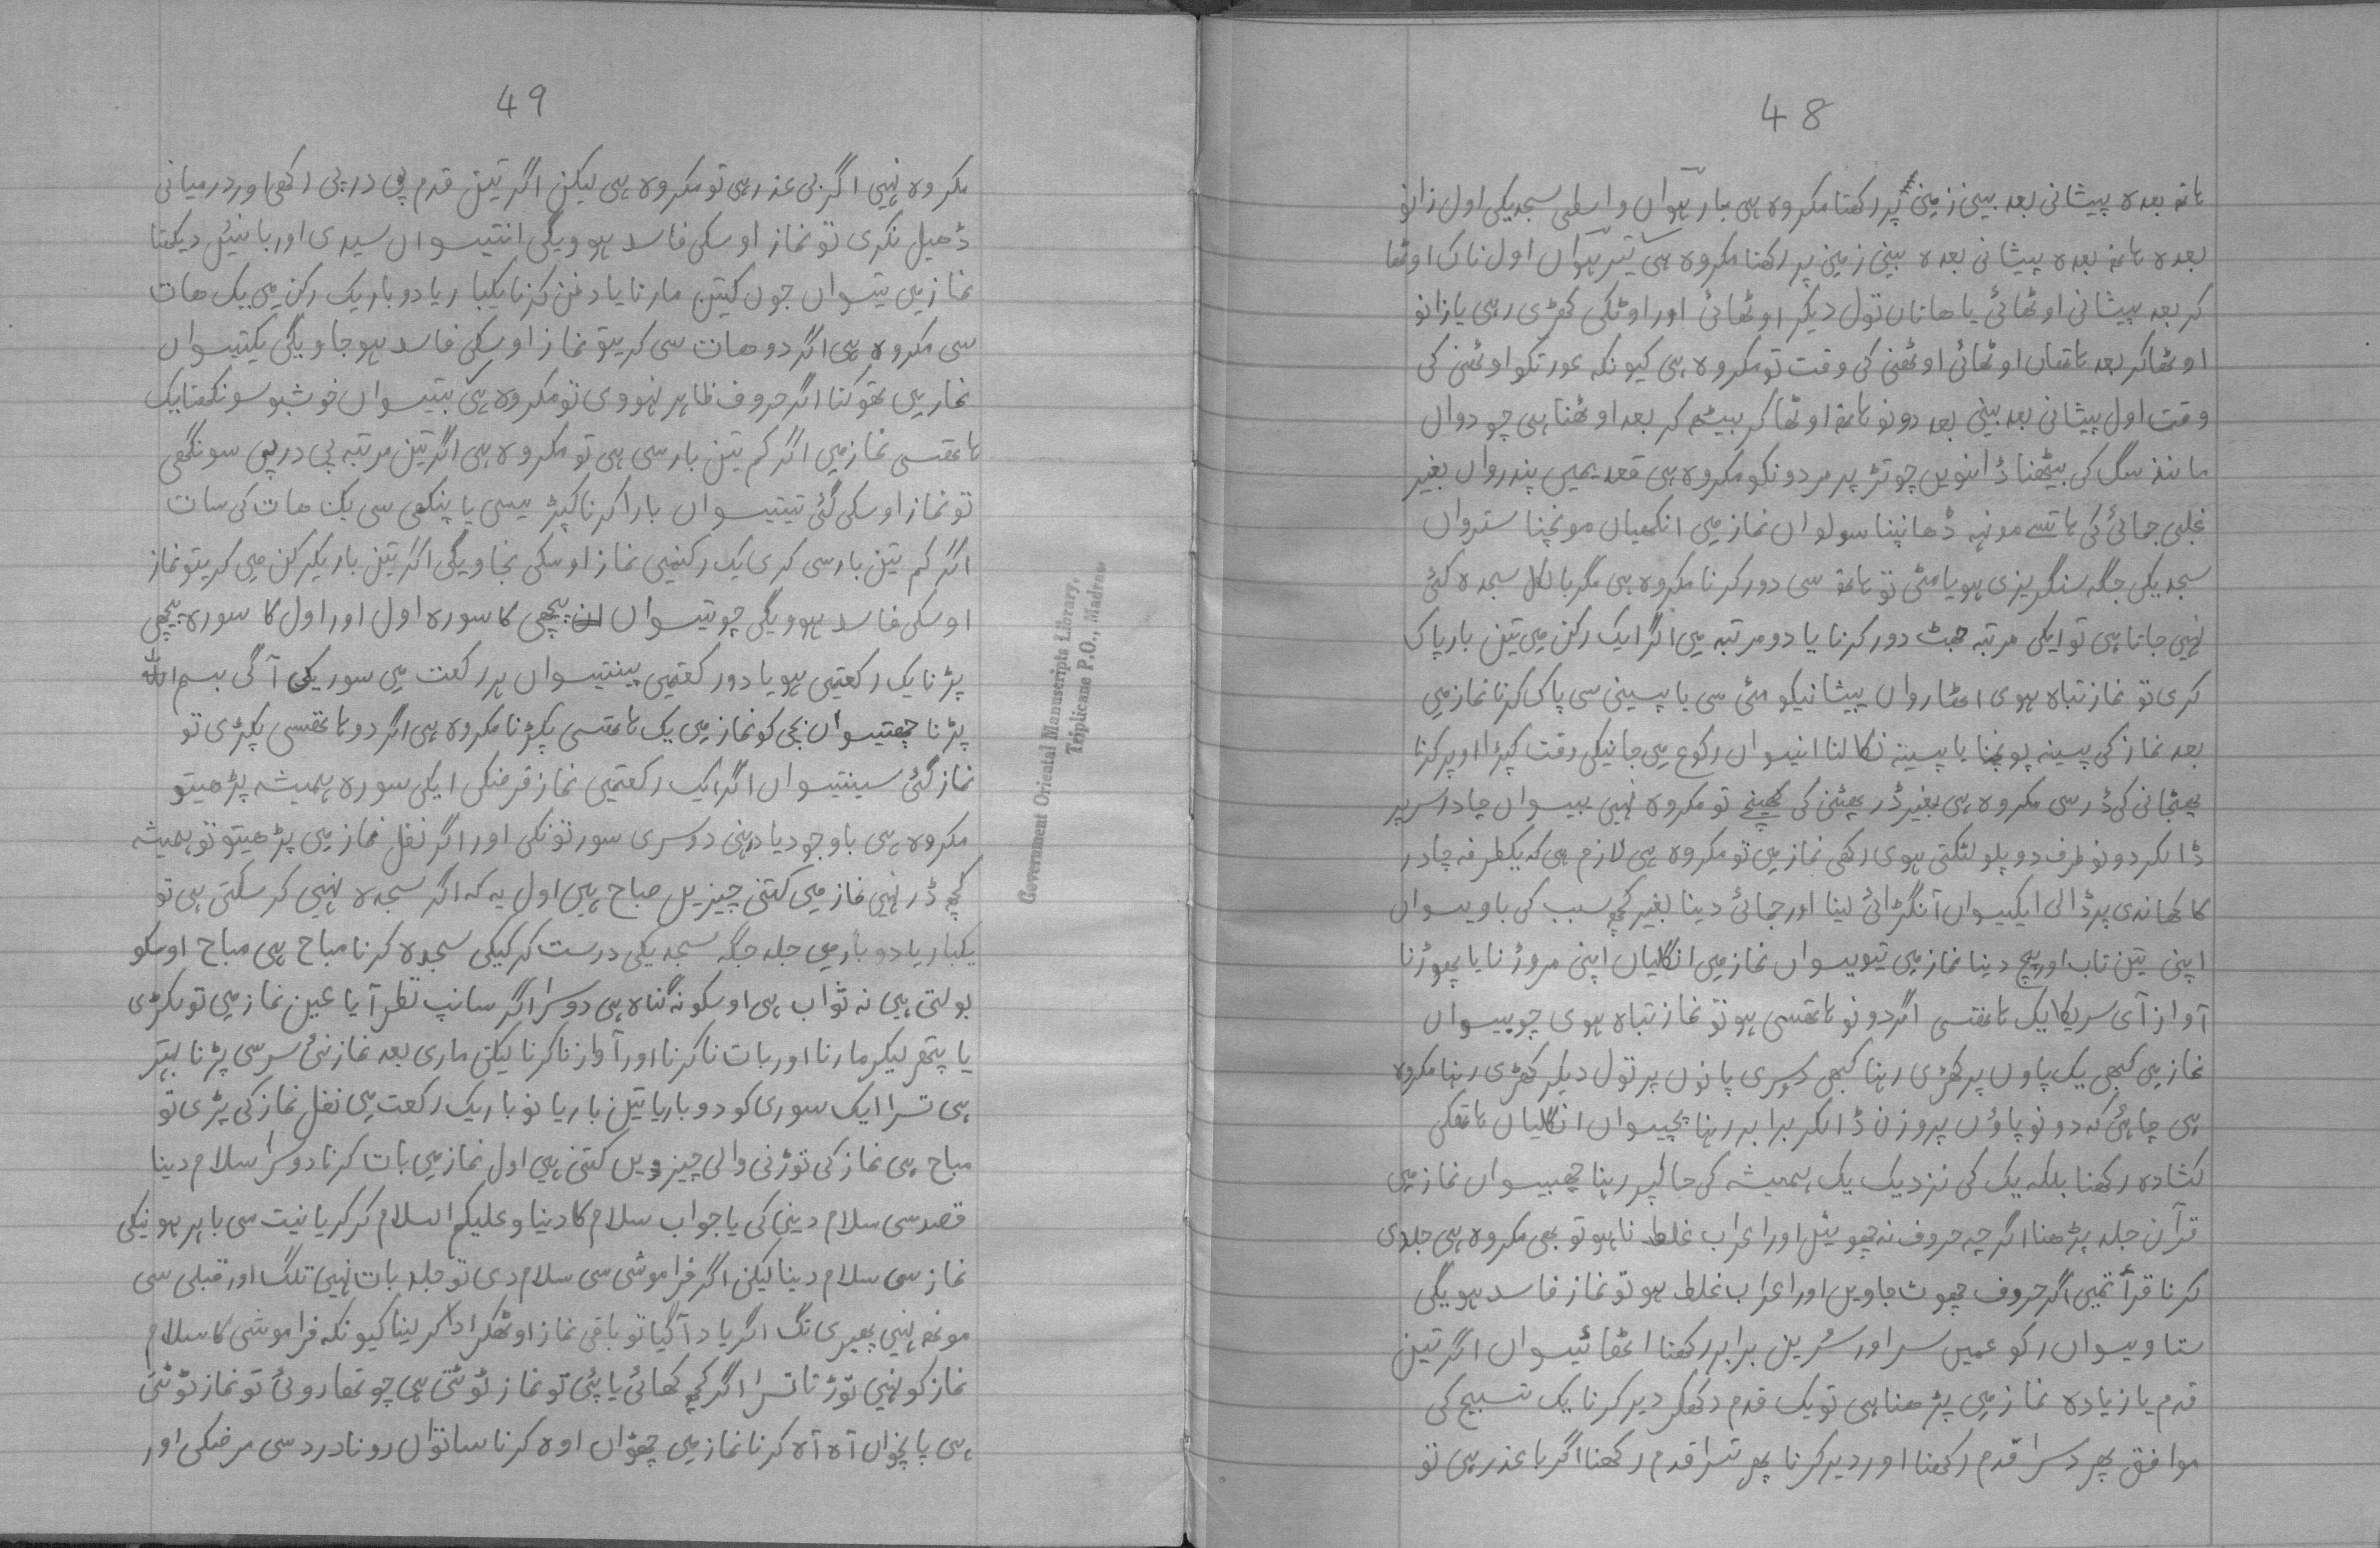 48
ہاتہ بعدہ پیشانی بعد بینی زمین پر رکھنا مکروہ ہی بارہواں واسطی سجدیکی اول زانو
بعدہ ہاتہ بعدہ پیشانی بعدہ بینی زمین پر رکھنا مکروہ ہی تیرہواں اول ناک اوٹھا
کر بعد پیشانی اوٹھائی یا ھاتاں تول دیکر اوٹھائی اور اوٹکی کھڑی رہی یا زانو
اوٹھاکر بعد ہاتھاں اوٹھائی اوٹھنی کی وقت تو مکروہ ہی کیونکہ عورتکو اوٹھنی کی
وقت اول پیشانی بعد بینی بعد دونو ہاتھ اوٹھا کر بیٹھ کر بعد اوٹھنا ہی چودواں
مانند سگ کی بیٹھنا ڈانویں چوتڑ پر مردونکو مکروہ ہی قعدیمیں پندرواں بغیر
غلبی جمائی کی ہاتسے مونہہ ڈھانپنا سولواں نماز میں انکھیاں مونچنا سترواں
سجدیکی جگہ سنگریزی ہو یا مٹی تو ہاتھ سی دور کرنا مکروہ ہی مگر بالکل سجدہ کئی
نہیں جاتا ہی تو ایکی مرتبہ جھٹ دور کرنا یا دو مرتبہ میں اگر ایک رکن میں تین بار پاک
کری تو نماز تباہ ہوی اٹھارواں پیشانیکو مٹی سی یا پسینی سی پاک کرنا نماز میں
بعد نماز کی پسینہ پونچنا یا پسینہ نکالنا انیسواں رکوع میں جانیکی وقت کپڑا اوپر کرنا
پھٹجانی کی ڈر سی مکروہ ہی بغیر ڈر پھٹنی کی کھینچے تو مکروہ نہیں بیسواں چادر سر پر
ڈالکر دونو طرف دو پلو لٹکتی ہوی رکھی نماز میں تو مکروہ ہی لازم ہی کہ یکطرفہ چادر
کا کھاندی پر ڈالی ایکیسواں آنگڑائی لینا اور جمائی دینا بغیر کچھ سبب کی باویسواں
اپنی تین تاب اور پیچ دینا نماز میں تیویسواں نماز میں انگلیاں اپنی مروڑنا یا پھوڑنا
آواز آی سریکا ایک ہاتھسی اگر دونو ہاتھسی ہو تو نماز تباہ ہوی چوبیسواں
نماز میں کبھی یک پاوں پر کھڑی رہنا کبھی دوسری پانوں پر تول دیکر کھڑی رہنا مکروہ
ہی چاہئی کہ دونو پاؤں پر وزن ڈالکر برابر رہنا پچیسواں انگلیاں ہاتھکی
کشادہ رکھنا بلکہ یک کی نزدیک یک ہمیشہ کی حالپر رہنا چھبیسواں نماز میں
قرآن جلد پڑھنا اگرچہ حروف نہ چھوٹیں اور اعراب غلط ناہو تو بھی مکروہ ہی جلدی
کرنا قرأتمیں اگر حروف چھوٹ جاویں اور اعراب غلط ہو تو نماز فاسد ہویگی
ستاویسواں رکوعمیں سر اور سُرین برابر رکھنا اٹھائیسواں اگر تین
قدم یا زیادہ نماز میں پڑھنا ہی تو یک قدم رکھکر دیر کرنا یک تسبیح کی
موافق پھر دسرا قدم رکھنا اور دیر کرنا پھر تسرا قدم رکھنا اگر با عذر ہی تو
49
مکروہ نہیں اگر بی عذر ہی تو مکروہ ہی لیکن اگر تین قدم پی در پی رکھی اور درمیانی
ڈھیل نکری تو نماز اوسکی فاسد ہوویگی انتیسواں سیدی اور بائیں دیکھنا
نماز میں تیسواں جوں کیتیں مارنا یا دفن کرنا یکبار یا دوبار یک رکن میں یک ھات
سی مکروہ ہی اگر دو ھات سی کریتو نماز اوسکی فاسد ہوجاویگی یکتیسواں
نماز میں تھوکنا اگر حروف ظاہر نہووی تو مکروہ ہی بتیسواں خوشبو سونگھنا یک
ہاتھسی نماز میں اگر کم تین بار سی ہی تو مکروہ ہی اگر تین مرتبہ پی در پی سونگھی
تو نماز اوسکی گئی تیتیسواں بارا کرنا کپڑیسی یا پنکھی سی یک ھات کی سات
اگر کم تین بار سی کری یک رکنمیں نماز اوسکی نجاویگی اگر تین بار یکرکن میں کریتو نماز
اوسکی فاسد ہوویگی چوتیسواں پیچھی کا سورہ اول اور اول کا سورہ پیچھی
پڑنا یک رکعتمیں ہو یا دو رکعتمیں پینتیسواں ہر رکعت میں سوریکی آگی بسم اللہ
پڑنا چھتیسواں بچی کو نماز میں یک ہاتھسی پکڑنا مکروہ ہی اگر دو ہاتھسی پکڑی تو
نماز گئی سینتیسواں اگر ایک رکعتمیں نماز فرضکی ایکی سورہ ہمیشہ پڑھیتو
مکروہ ہی باوجود یاد رہنی دوسری سورتونکی اور اگر نفل نماز میں پڑھیتو تو ہمیشہ
کچھ ڈر نہیں نماز میں کتنی چیزیں مباح ہیں اول یہ کہ اگر سجدہ نہیں کر سکتی ہی تو
یکبار یا دوبار میں جلد جگہ سجدیکی درست کرکیکی سجدہ کرنا مباح ہی مباح اوسکو
بولتی ہیں نہ ثواب ہی اوسکو نہ گناہ ہی دوسرا اگر سانپ نظر آیا عین نماز میں تو لکڑی
یا پتھر لیکر مارنا اور بات ناکرنا اور آواز ناکرنا لیکن ماری بعد نماز نئی سرسی پڑنا بہتر
ہی تسرا ایک سوری کو دوبار یا تین بار یا نو بار یک رکعت میں نفل نماز کی پڑی تو
مباح ہی نماز کی توڑنی والی چیزویں کتنی ہیں اول نماز میں بات کرنا دوسرا سلام دینا
قصد سی سلام دینی کی یا جواب سلام کا دینا وعلیکم السلام کرکر یا نیت سی باہر ہونیکی
نماز سی سلام دینا لیکن اگر فراموشی سی سلام دی تو جلد بات نہیں تلگ اور قبلی سی
مونھ نہیں پھیری تگ اگر یاد آگیا تو باقی نماز اوٹھکر ادا کرلینا کیونکہ فراموشی کا سلام
نماز کو نہیں توڑتا تسرا اگر کچھ کھائی یا پئی تو نماز ٹوٹتی ہی چوتھا روئی تو نماز ٹوٹتی
ہی پانچواں آہ آہ کرنا نماز میں چھٹواں اوہ کرنا ساتواں رونا درد سی مرضکی اور
Government Oriental Manuscripts Library,
Triplicane P.O., Madras